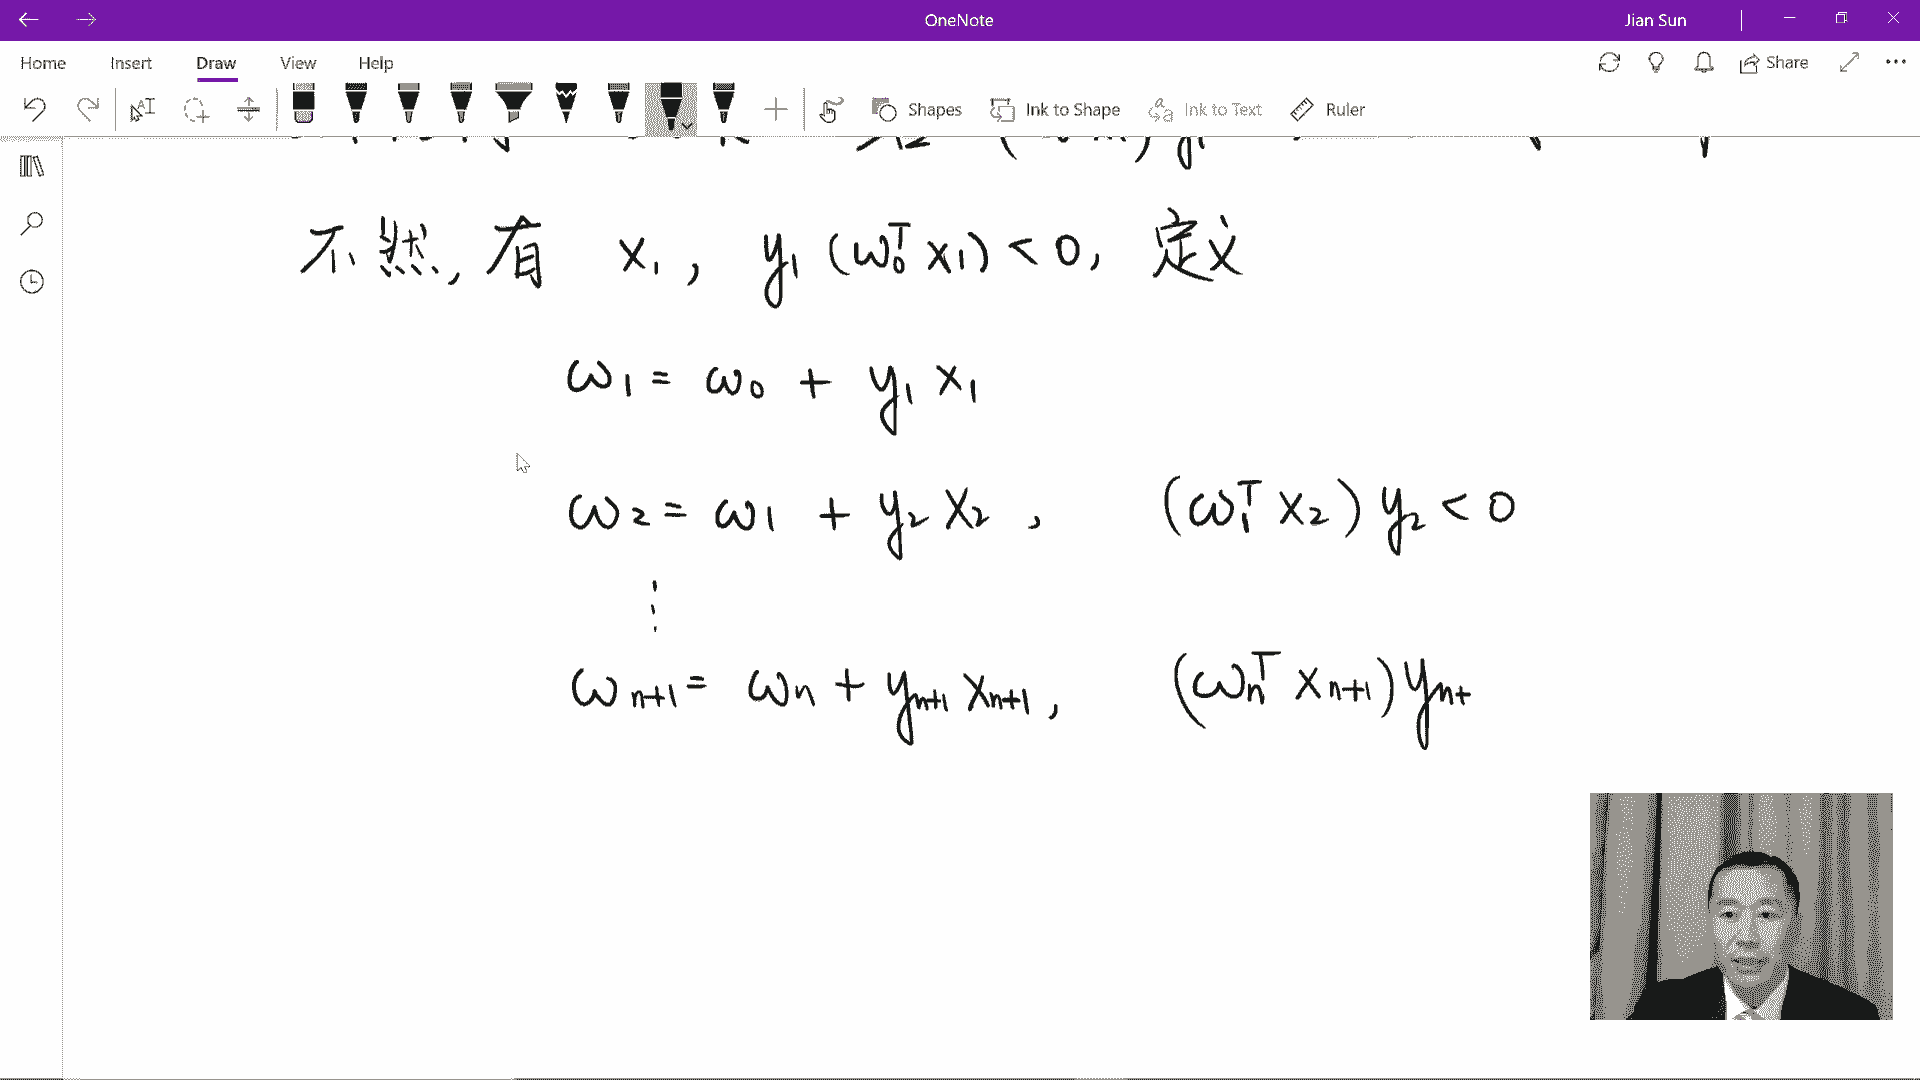 OneNote
Jian Sun
Home Insert Draw View Help
Share
Shapes Ink to Shape Ink to Text Ruler
不然, 有 x₁, y₁(ω₀ᵀ x₁) < 0, 定义
ω₁ = ω₀ + y₁ x₁
ω₂ = ω₁ + y₂ x₂, (ω₁ᵀ x₂) y₂ < 0
⋮
ωₙ₊₁ = ωₙ + yₙ₊₁ xₙ₊₁, (ωₙᵀ xₙ₊₁) yₙ₊